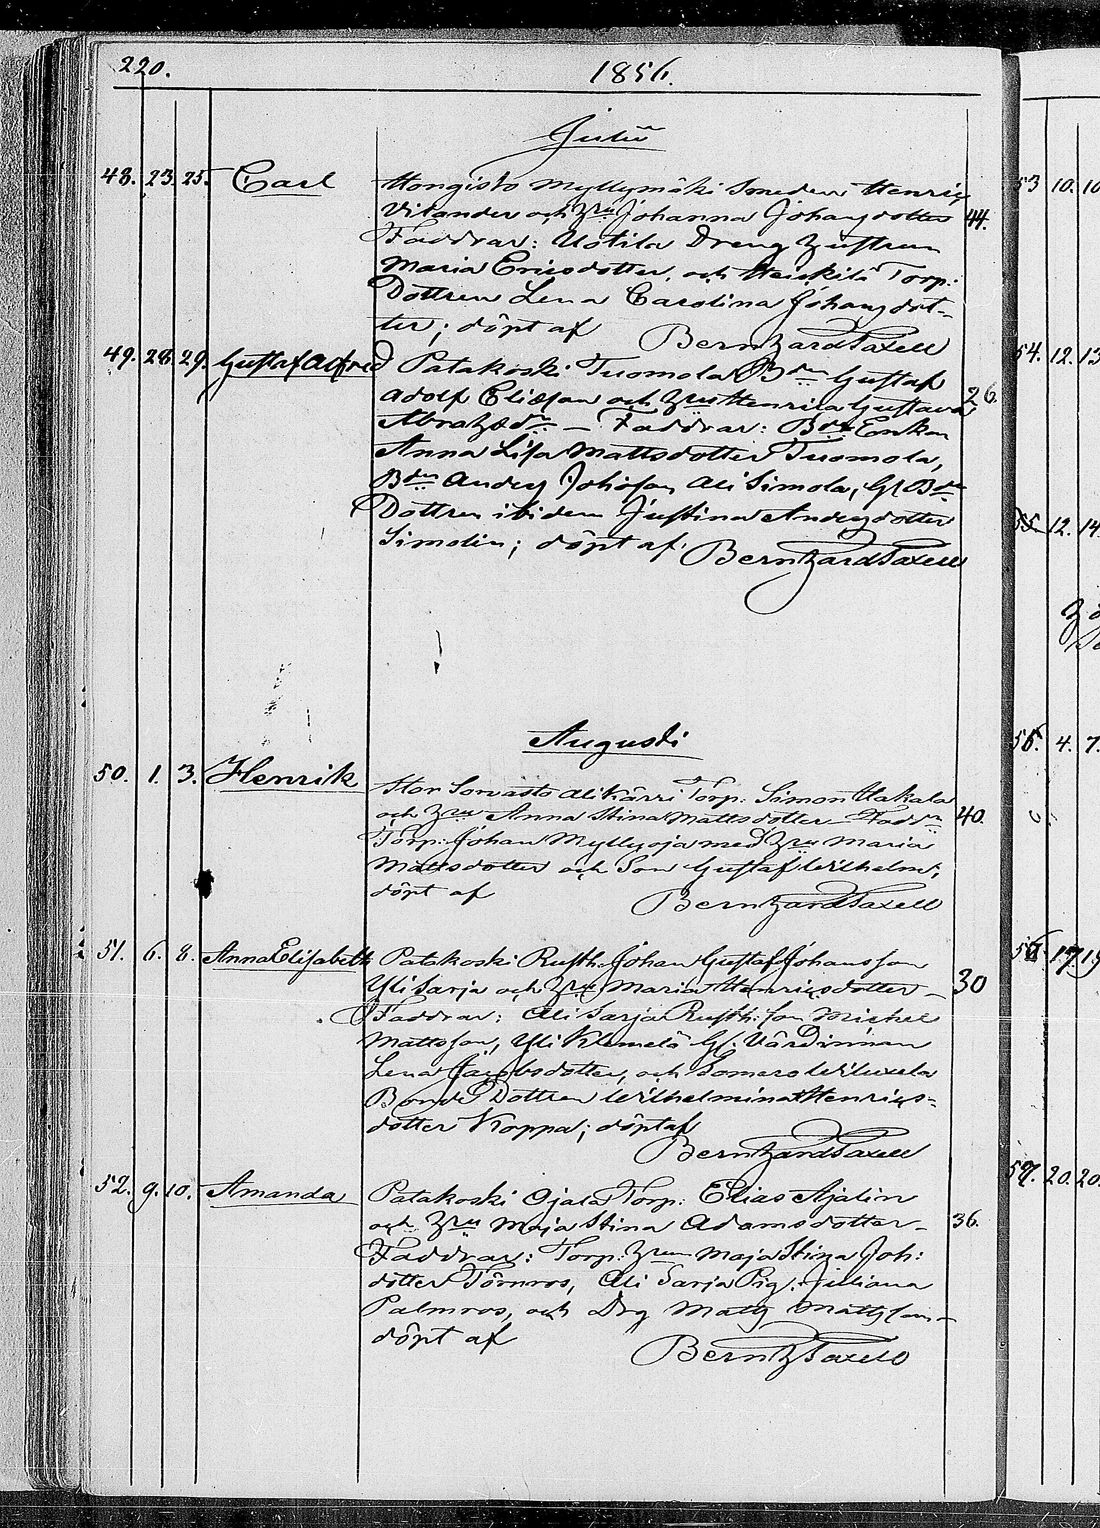 220.
1856.
Julii
48. 23. 25. Carl
Hongisto Myllymäki Smeden Henric
Vilander och Hru Johanna Johansdotter 44.
Faddrar: Uotila Dreng Hustrun
Maria Ericsdotter, och Heickilä Torp:
Dottren Lena Carolina Johansdot-
ter; döpt af Bernhard Taxell
49. 28. 29. Gustaf Alfred
Patakoski Tuomola Bdn Gustaf
Adolf Eliæson och Hru Henrica Gustava 26.
Abrahsdr – Faddrar: Bde Enkan
Anna Lisa Mattsdotter Tuomola,
Bdn Anders Johsson Ali Simola, Gl Bde
Dottren ibidem Justina Andersdotter
Simelin; döpt af Bernhard Taxell
Augusti
50. 1. 3. Henrik
Stor Sorvasto Alikärri Torp: Simon Uakala
och Hru Anna Stina Mattsdotter – Faddr 40.
Torp: Johan Myllyoja med Hru Maria
Mattsdotter och Son Gustaf Wilhelm;
döpt af Bernhard Taxell
51. 6. 8. Anna Elisabeth
Patakoski Rusth. Johan Gustaf Johansson
Yli Sarja och Hru Maria Henricsdotter – 30
Faddrar: Ali Sarja Rusth. Son Michel
Mattsson, Yli Klemelä Gl. Värdinnan
Lena Jacobsdotter, och Somero Wiluxela
Bonde Dottren Wilhelmina Henrics-
dotter Koppa; döpt af
Bernhard Taxell
52. 9. 10. Amanda
Patakoski Ojala Torp: Elias Ajalin
och Hru Maja Stina Adamsdotter – 36.
Faddrar: Torp: Hrun Maja Stina Joh:
dotter Törnros, Ali Sarja Pig. Juliana
Palmros, och Drg Mats Mattsson –
döpt af
Bernh Taxell
53 10. 10
54. 12. 13
55. 12. 14
4. 7.
17. 19
57. 20. 20